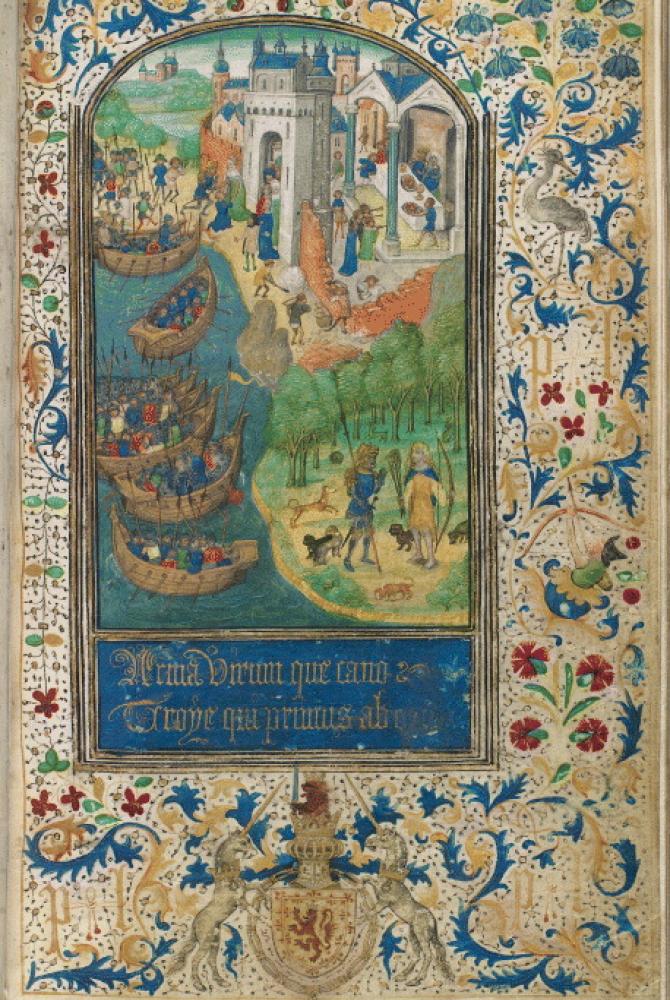 Arma Virum que cano
Troye qui primus ab
p l
p l
p l